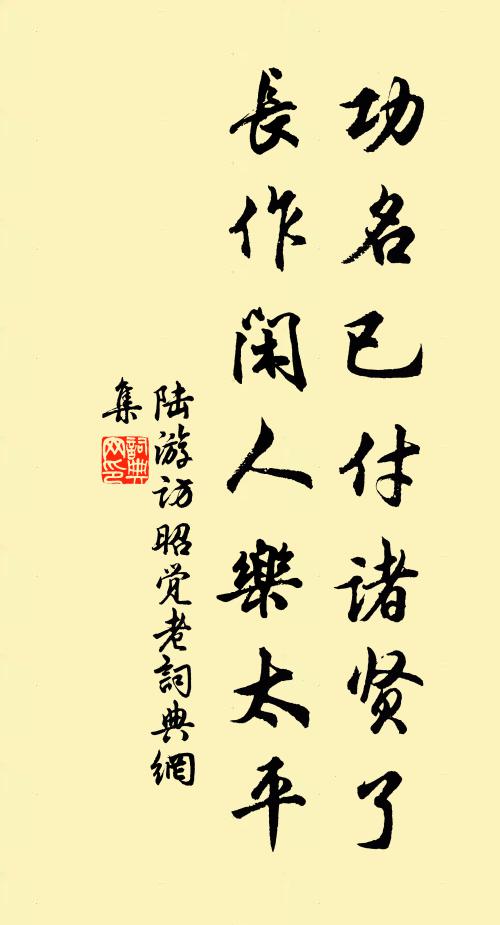 功名已付诸贤了
長作閑人樂太平
陆游访昭觉老詞典網
集
詞典网印